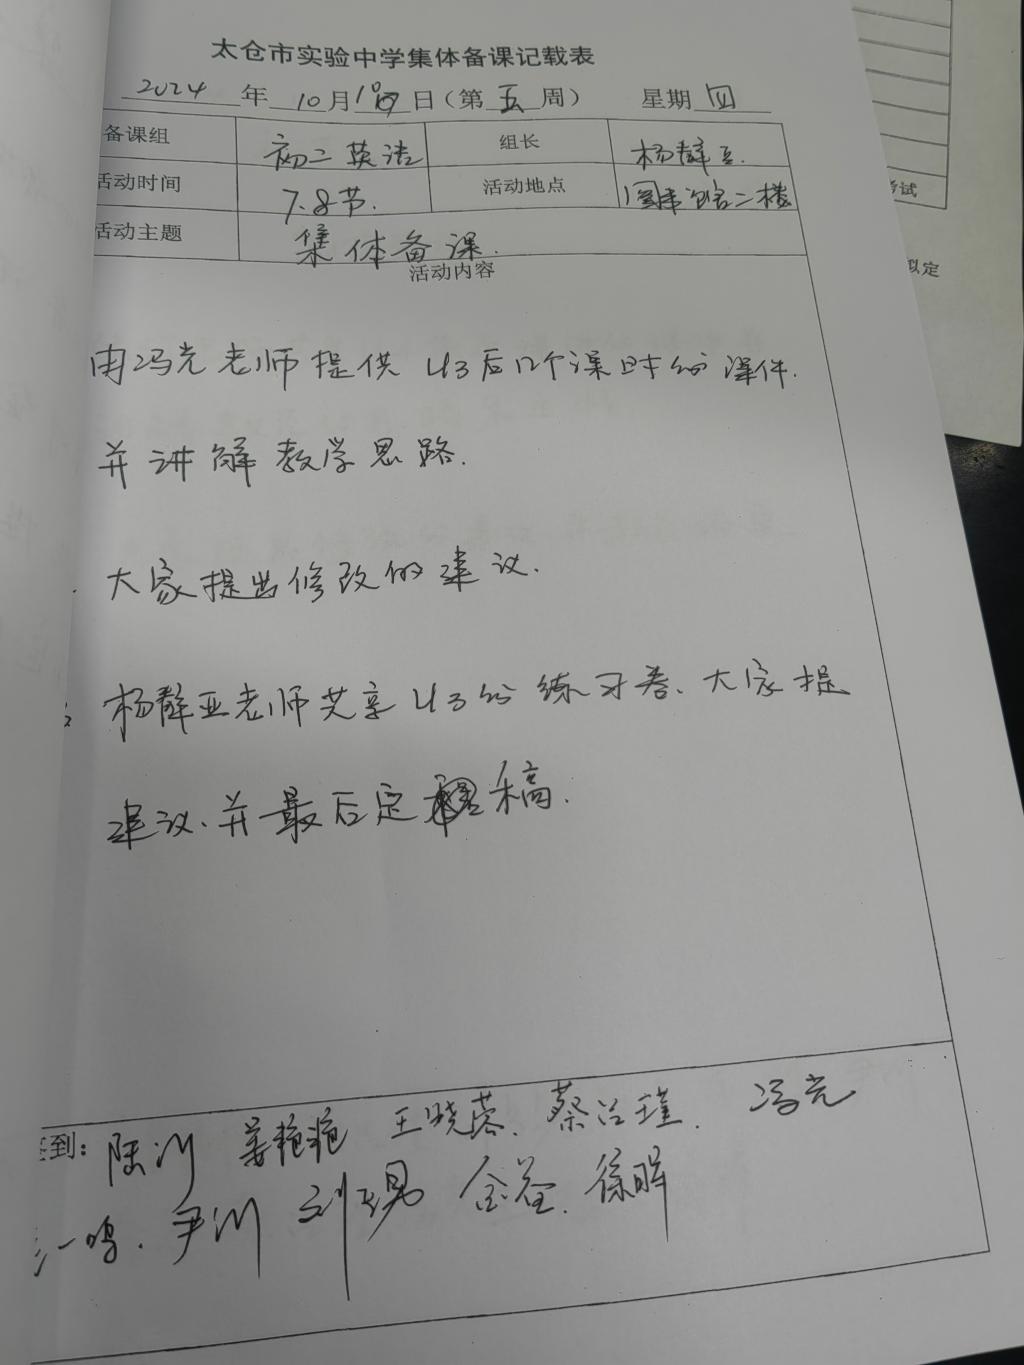 太仓市实验中学集体备课记载表
2024 年 10 月 日（第 五 周） 星期 四
备课组 初二英语 组长 杨静亚.
活动时间 7.8节. 活动地点 图书馆二楼
活动主题 集体备课.
活动内容
由冯光老师提供 U3后几个课时的课件.
并讲解教学思路.
大家提出修改的建议.
杨静亚老师共享U3的练习卷、大家提
建议、并最后定稿.
到： 陆川 姜艳艳 王晓蓉. 蔡 瑾. 冯光
一鸣. 尹川 刘 金 . 徐晖
考试
拟定